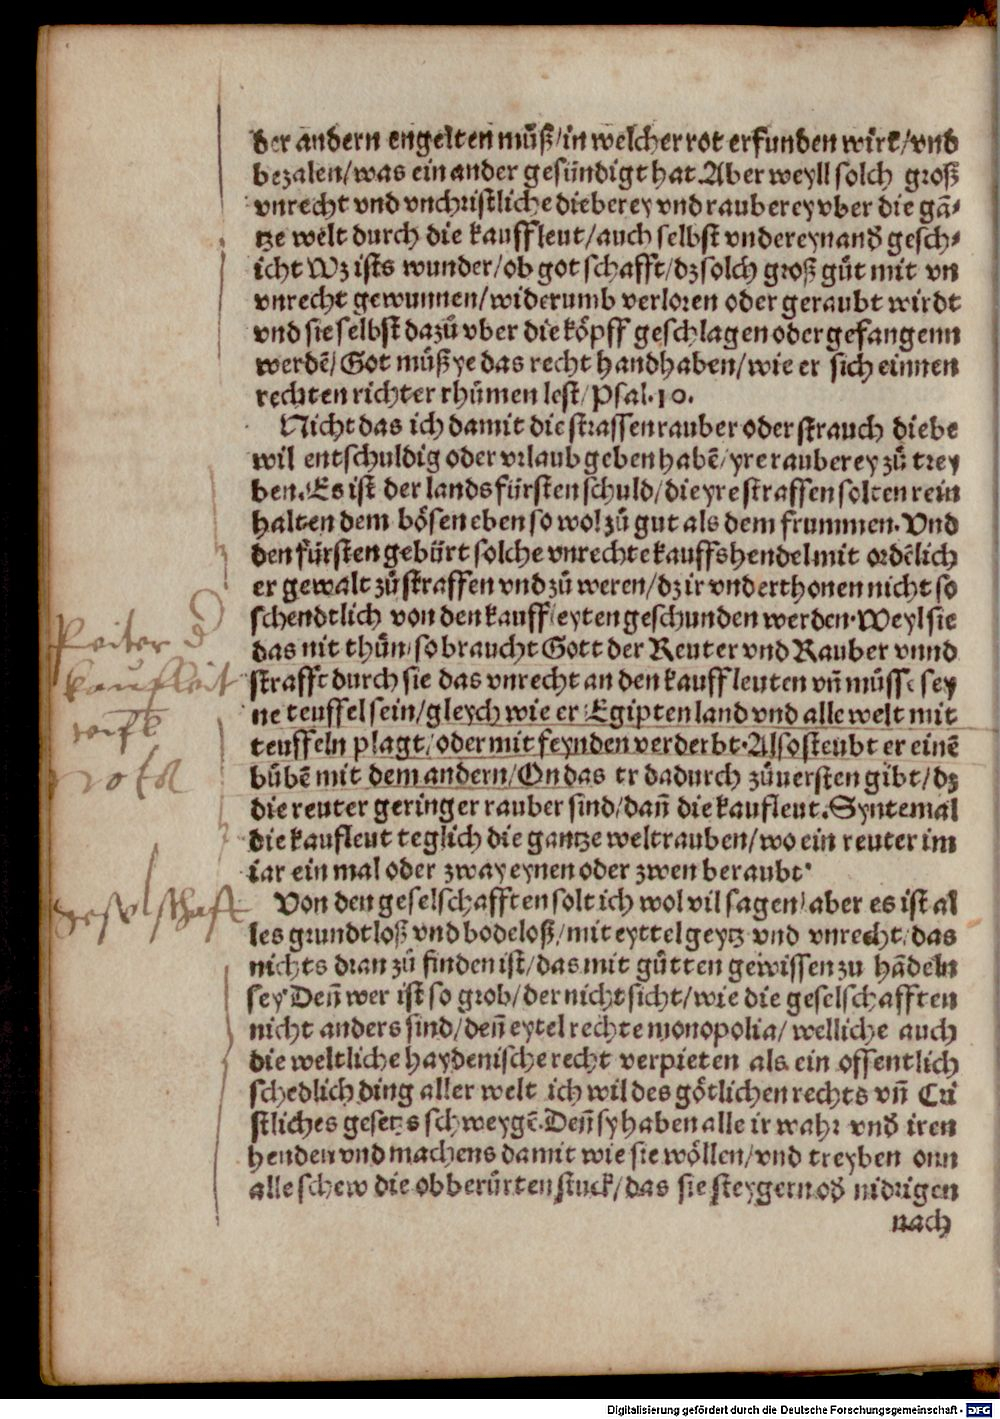 der andern engelten můß/in welcher rot erfunden wirt/vnd
bezalen/was ein ander gesündigt hat. Aber weyll solch groß
vnrecht vnd vnchristliche dieberey vnd rauberey vber die gā⸗
tze welt durch die kauffleut/auch selbst vndereynand gesch⸗
icht Wz ists wunder/ob got schafft/dz solch groß gůt mit vn
vnrecht gewunnen/widerumb verloren oder geraubt wirdt
vnd sie selbst dazů vber die köpff geschlagen oder gefangenn
werdē/Got můß ye das recht handhaben/wie er sich einnen
rechten richter rhümen lest/Psal.10.
Nicht das ich damit die strassenrauber oder strauch diebe
wil entschuldig oder vrlaub geben habē/yre rauberey zů trey
ben. Es ist der landsfürsten schuld/die yre strassen solten rein
halten dem bösen eben so wol zů gut als dem frummen. Vnd
den fürsten gebürt solche vnrechte kauffshendel mit ordēlich
er gewalt zů straffen vnd zů weren/dz ir vnderthonen nicht so
schendtlich von den kauffleyten geschunden werden. Weyl sie
das nit thůn/so braucht Gott der Reuter vnd Rauber vnnd
strafft durch sie das vnrecht an den kauffleuten vñ müsse sey
ne teuffel sein/gleych wie er Egiptenland vnd alle welt mit
teuffeln plagt/oder mit feynden verderbt. Also steubt er einē
bübē mit dem andern/On das er dadurch zůuersten gibt/dz
die reuter geringer rauber sind/dañ die kaufleut. Syntemal
die kaufleut teglich die gantze welt rauben/wo ein reuter im
iar ein mal oder zway eynen oder zwen beraubt.
Von den geselschafften solt ich wol vil sagen/aber es ist al
les grundtloß vnd bodeloß/mit eyttel geytz vnd vnrecht/das
nichts dran zů finden ist/das mit gůtten gewissen zu hādeln
sey Deñ wer ist so grob/der nicht sicht/wie die geselschafften
nicht anders sind/deñ eytel rechte monopolia/welliche auch
die weltliche haydenische recht verpieten als ein offentlich
schedlich ding aller welt ich wil des götlichen rechts vñ Cri
stliches gesetzs schweygē. Deñ sy haben alle ir wahr vnd iren
henden vnd machens damit wie sie wöllen/vnd treyben onn
alle schew die obberürten stuck/das sie steygern od nidrigen
nach
Reiter d
kaufleit
nota
geselschaft
Digitalisierung gefördert durch die Deutsche Forschungsgemeinschaft - DFG